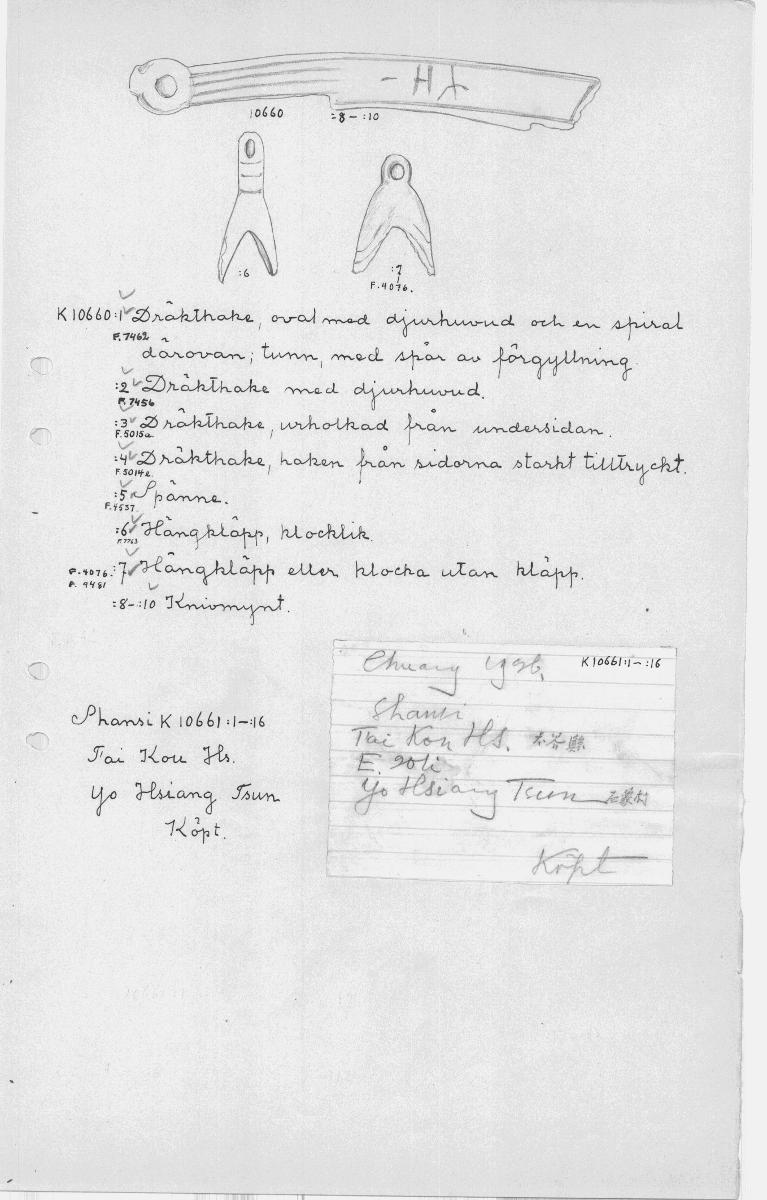 10660 :8-:10
:6
:7
F.4076.
K10660:1 Dräkthake, oval med djurhuvud och en spiral
F.7462
därovan; tunn, med spår av förgyllning.
:2 Dräkthake med djurhuvud.
F.7456
:3 Dräkthake, urholkad från undersidan.
F.5015a
:4 Dräkthake, haken från sidorna starkt tilltryckt.
F.5014e.
:5 Spänne.
F.4537.
:6 Hängkläpp, klocklik.
F.4076. :7 Hängkläpp eller klocka utan kläpp.
F. 9481
:8-:10 Knivmynt.
Chuang K10661:1-:16
Shansi
Tai Kou Hs. 太谷縣
E. 20 li
Yo Hsiang Tsun
Köpt
Shansi K 10661:1-:16
Tai Kou Hs.
Yo Hsiang Tsun
Köpt.